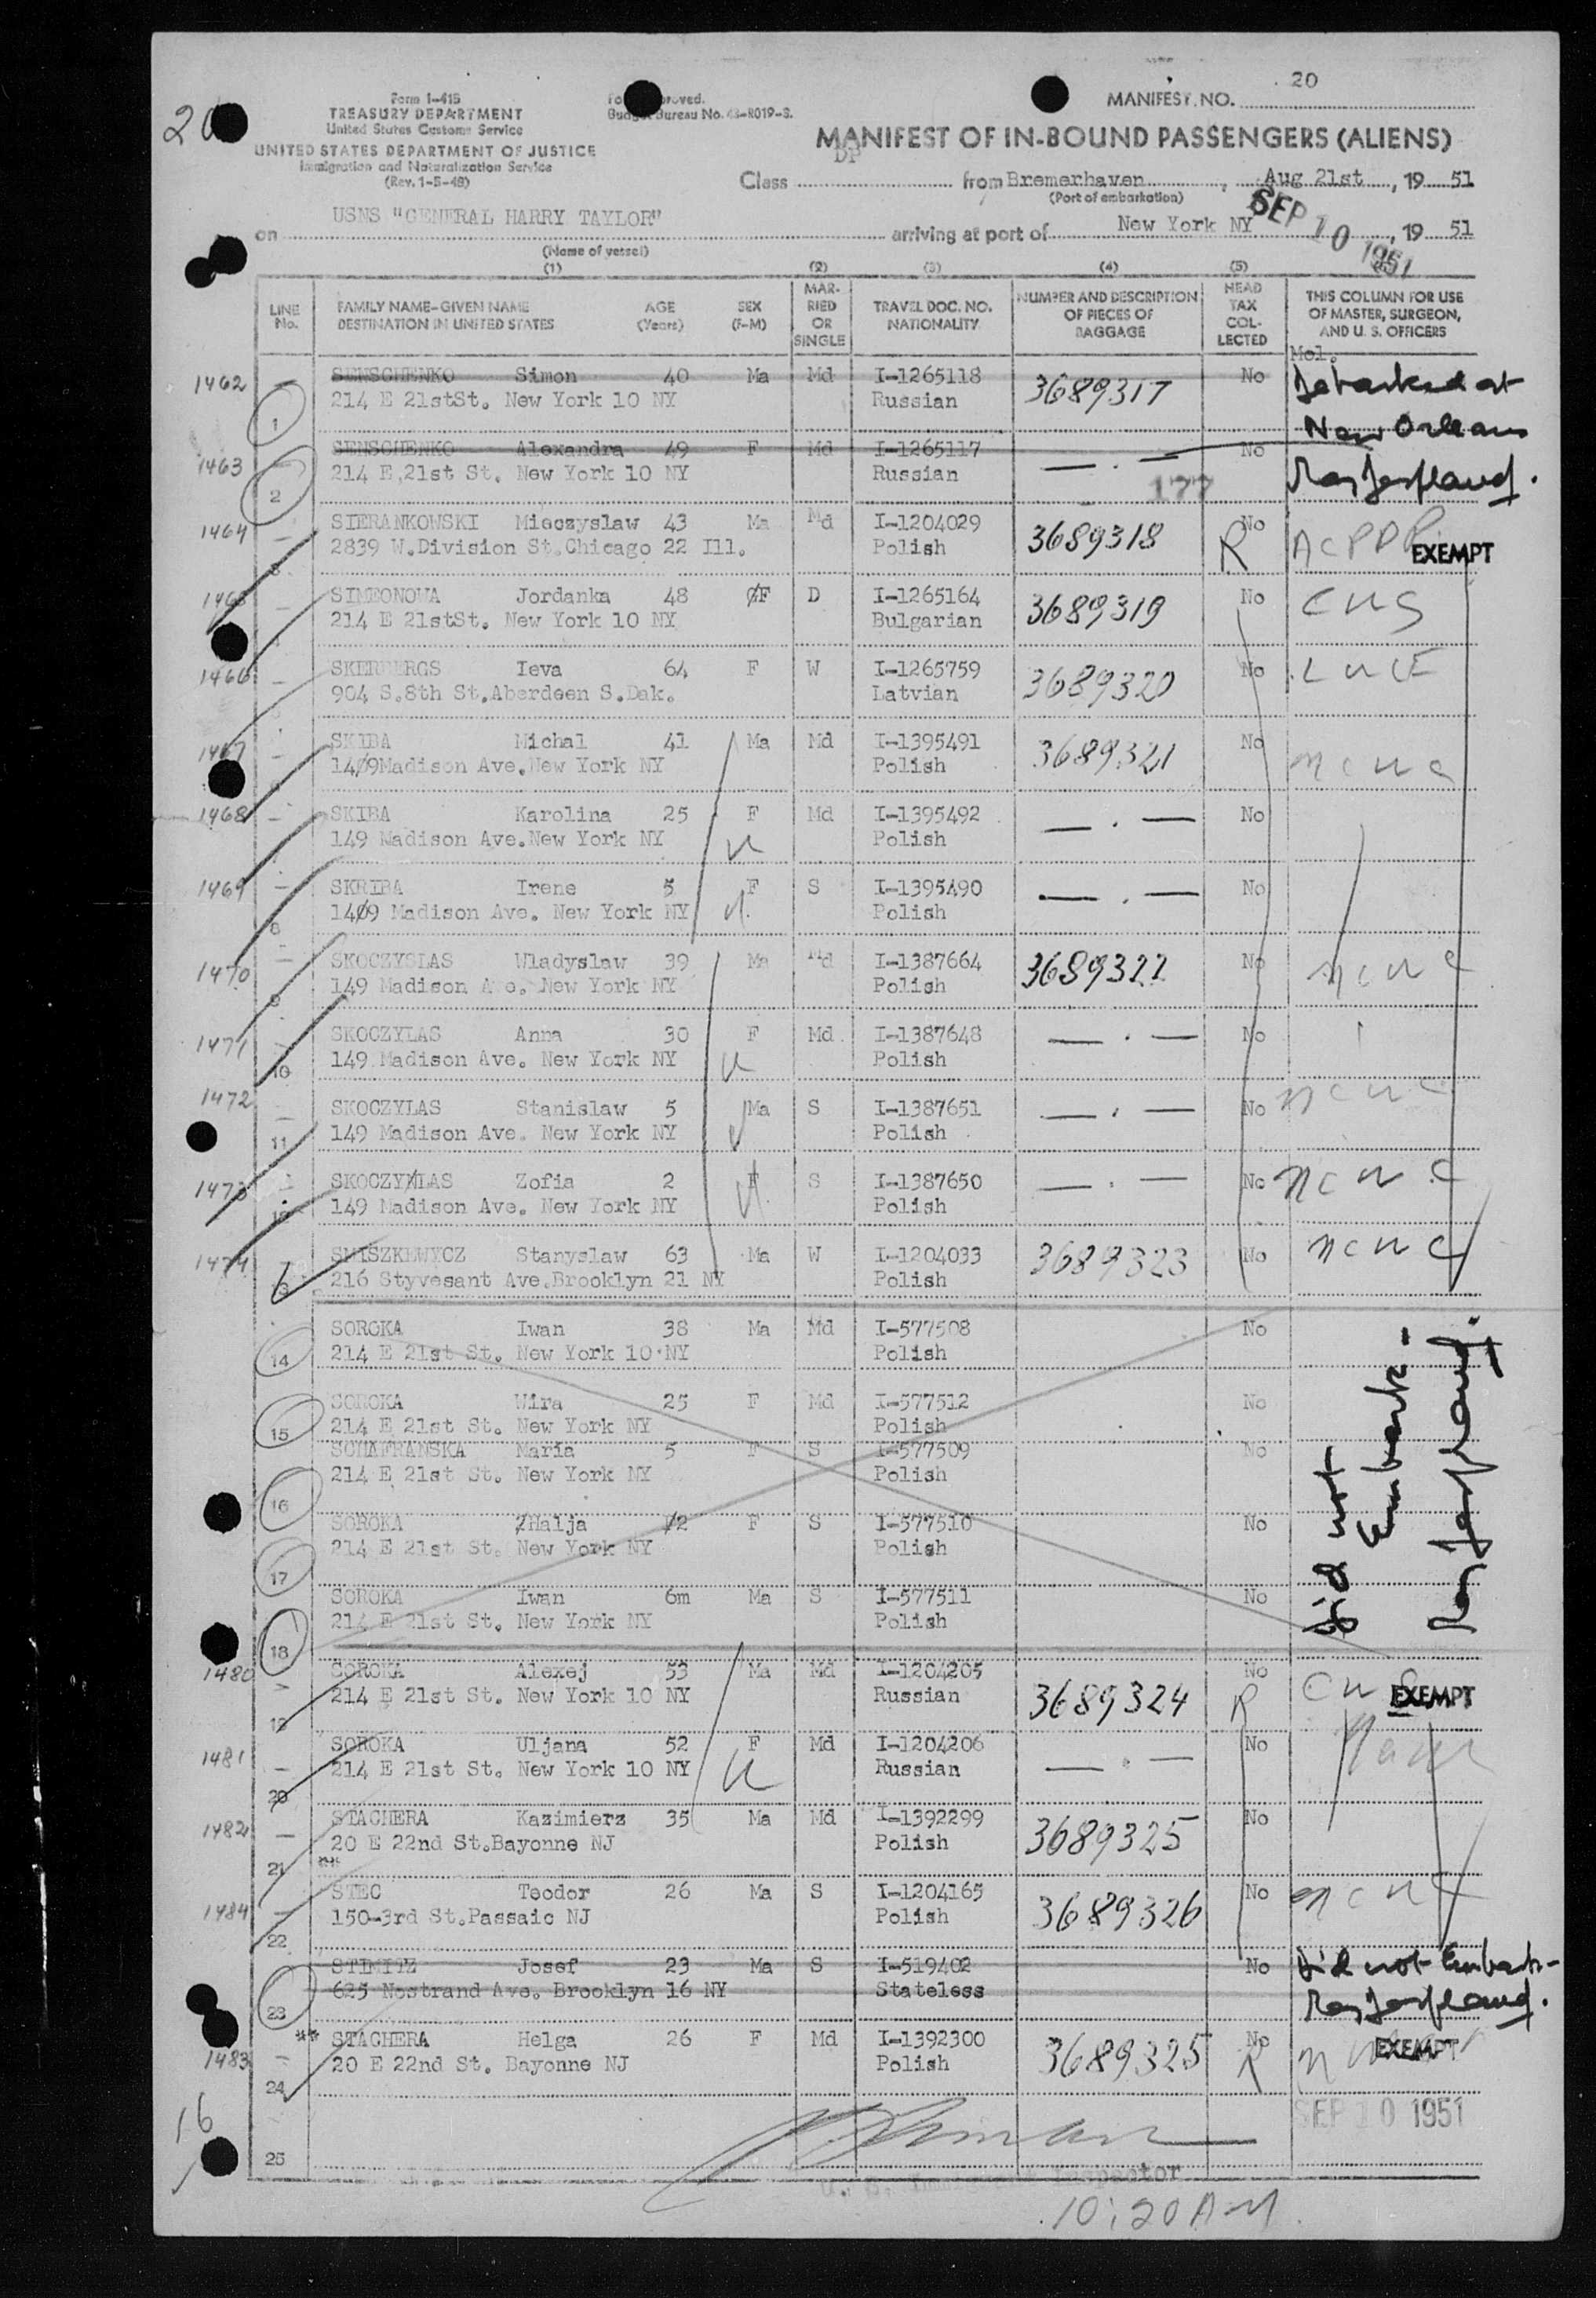 20
Form I-415
TREASURY DEPARTMENT
United States Customs Service
UNITED STATES DEPARTMENT OF JUSTICE
Immigration and Naturalization Service
(Rev. 1-5-49)
Budget Bureau No. 43-R019-3.
MANIFEST NO. 20
MANIFEST OF IN-BOUND PASSENGERS (ALIENS)
Class DP from Bremerhaven, Aug 21st, 1951
(Port of embarkation)
on USNS "GENERAL HARRY TAYLOR" arriving at port of New York NY SEP 10 1951, 1951
(Name of vessel)
(1) (2) (3) (4) (5)
LINE No. FAMILY NAME-GIVEN NAME AGE SEX MARRIED OR SINGLE TRAVEL DOC. NO. NUMBER AND DESCRIPTION OF PIECES OF BAGGAGE HEAD TAX COLLECTED THIS COLUMN FOR USE OF MASTER, SURGEON, AND U. S. OFFICERS
DESTINATION IN UNITED STATES (Years) (F-M) NATIONALITY
1462 SENSCHENKO Simon 40 Ma Md I-1265118 3689317 No Debarked at
1 214 E 21stSt. New York 10 NY Russian New Orleans
1463 SENSCHENKO Alexandra 49 F Md I-1265117 — . — No
2 214 E.21st St. New York 10 NY Russian 177
1464 SIERANKOWSKI Mieczyslaw 43 Ma Md I-1204029 3689318 No
3 2839 W.Division St.Chicago 22 Ill. Polish R EXEMPT
1465 SIMEONOVA Jordanka 48 F D I-1265164 3689319 No
214 E 21stSt. New York 10 NY Bulgarian
1466 Ieva 64 F W I-1265759 3689320 No
904 S.8th St.Aberdeen S.Dak. Latvian
1467 SKIBA Michal 41 Ma Md I-1395491 3689321 No
1409Madison Ave.New York NY Polish
1468 SKIBA Karolina 25 F Md I-1395492 — . — No
149 Madison Ave.New York NY Polish
1469 SKRIBA Irene 5 F S I-1395490 — . — No
8 1409 Madison Ave. New York NY Polish
1470 SKOCZYSLAS Wladyslaw 39 Ma Md I-1387664 3689322 No
9 149 Madison Ave. New York NY Polish
1471 SKOCZYLAS Anna 30 F Md I-1387648 — . — No
10 149 Madison Ave. New York NY Polish
1472 SKOCZYLAS Stanislaw 5 Ma S I-1387651 — . — No
11 149 Madison Ave. New York NY Polish
1473 SKOCZYLAS Zofia 2 F S I-1387650 — . — No
12 149 Madison Ave. New York NY Polish
1474 SMISZKEWYCZ Stanyslaw 63 Ma W I-1204033 3689323 No
13 216 Styvesant Ave.Brooklyn 21 NY Polish
SOROKA Iwan 38 Ma Md I-577508 No
14 214 E 21st St. New York 10 NY Polish
SOROKA Wira 25 F Md I-577512 No
15 214 E 21st St. New York NY Polish
SCHAFRANSKA Maria 5 F S I-577509 No
16 214 E 21st St. New York NY Polish
SOROKA Halja 2 F S I-577510 No
17 214 E 21st St. New York NY Polish
SOROKA Iwan 6m Ma S I-577511 No
18 214 E 21st St. New York NY Polish
Did not
Embark-
1480 SOROKA Alexej 53 Ma Md I-1204205 3689324 No
19 214 E 21st St. New York 10 NY Russian R EXEMPT
1481 SOROKA Uljana 52 F Md I-1204206 — . — No
20 214 E 21st St. New York 10 NY Russian
1482 STACHERA Kazimierz 35 Ma Md I-1392299 3689325 No
21 20 E 22nd St.Bayonne NJ Polish
**
1484 STEC Teodor 26 Ma S I-1204165 3689326 No
22 150-3rd St.Passaic NJ Polish
Josef 23 Ma S I-519402 No Did not Embark-
23 625 Nostrand Ave. Brooklyn 16 NY Stateless
** STACHERA Helga 26 F Md I-1392300 3689325 No EXEMPT
1483 24 20 E 22nd St. Bayonne NJ Polish R
16 SEP 10 1951
25
U. S. Immigrant Inspector
10:20 AM